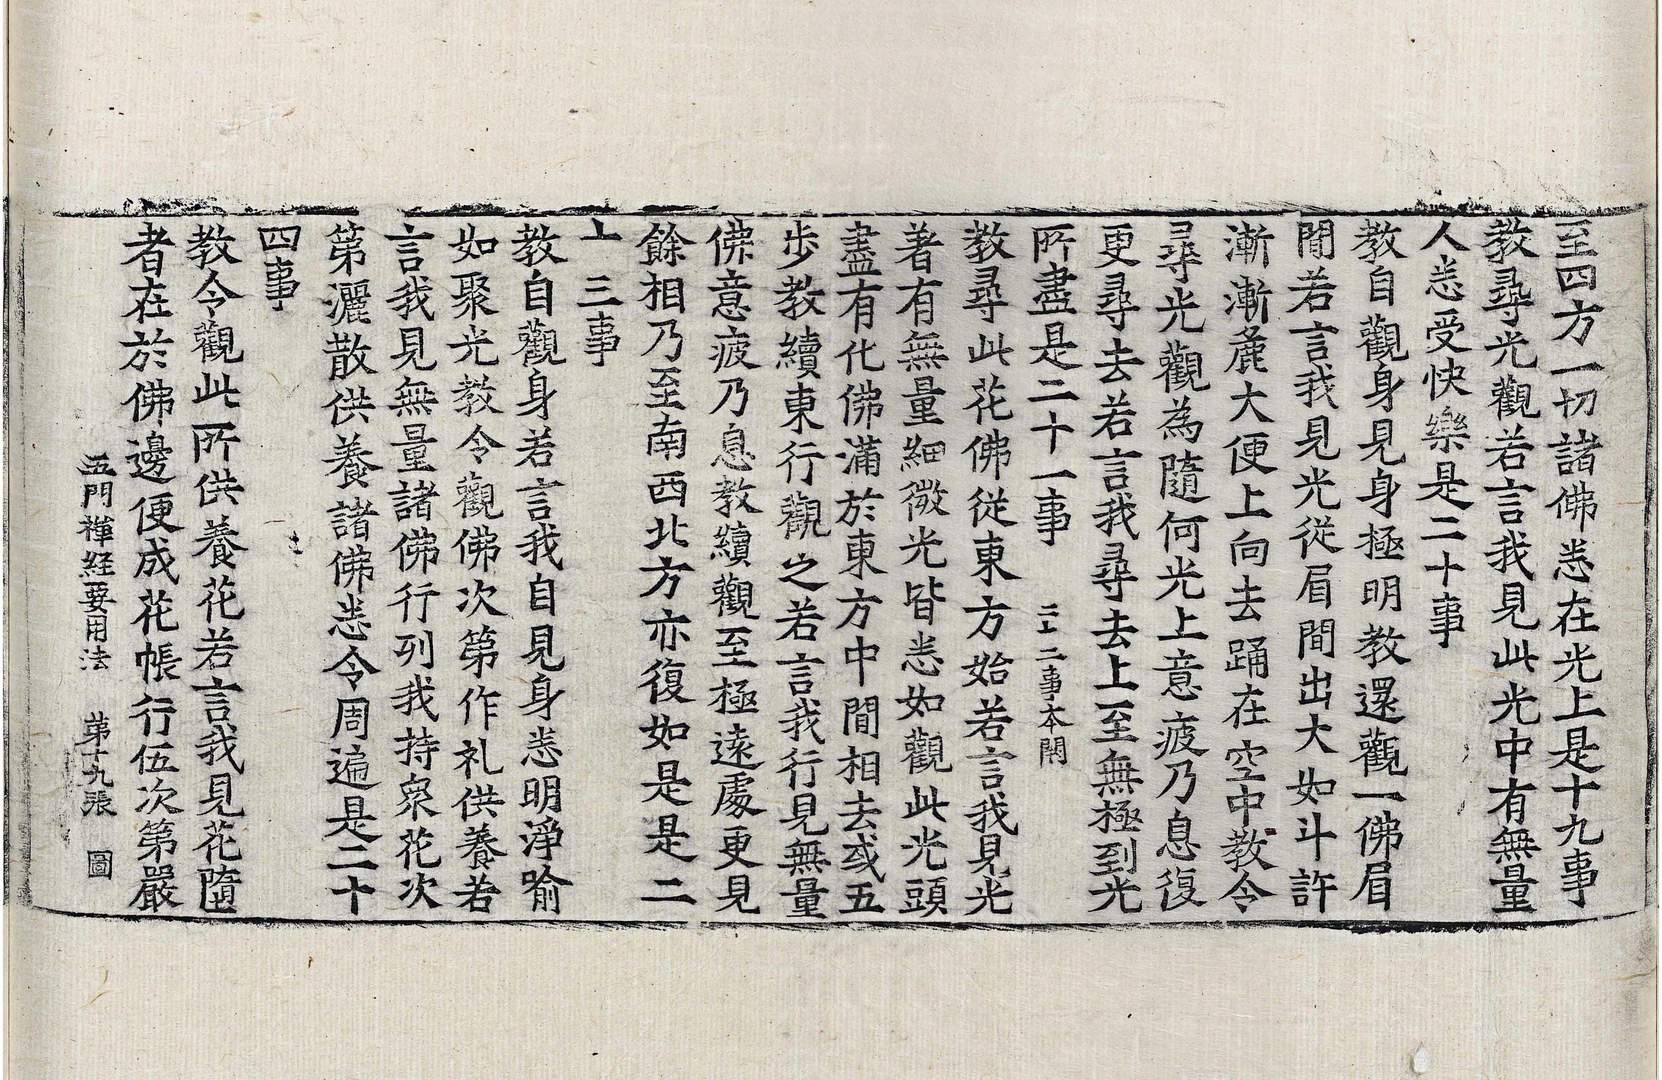 至四方一切諸佛悉在光上是十九事
教尋光觀若言我見此光中有無量
人悉受快樂是二十事
教自觀身見身極明教還觀一佛眉
間若言我見光從眉間出大如斗許
漸漸麁大便上向去踊在空中教令
尋光觀為隨何光上意疲乃息復
更尋去若言我尋去上至無極到光
所盡是二十一事 三十二事本闕
教尋此花佛從東方始若言我見光
著有無量細微光皆悉如觀此光頭
盡有化佛滿於東方中間相去或五
步教續東行觀之若言我行見無量
佛意疲乃息教續觀至極遠處更見
餘相乃至南西北方亦復如是是二
十三事
教自觀身若言我自見身悉明淨喻
如聚光教令觀佛次第作礼供養若
言我見無量諸佛行列我持衆花次
第灑散供養諸佛悉令周遍是二十
四事
教令觀此所供養花若言我見花隨
者在於佛邊便成花帳行伍次第嚴
五門禪經要用法 第十九張 圖